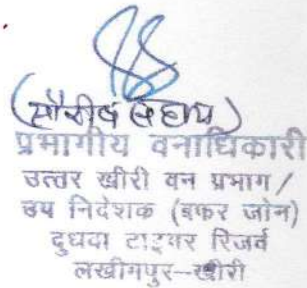 (सौरीष सहाय)
प्रभागीय वनाधिकारी
उत्तर खीरी वन प्रभाग /
उप निदेशक (बफर जोन)
दुधवा टाइगर रिजर्व
लखीमपुर-खीरी